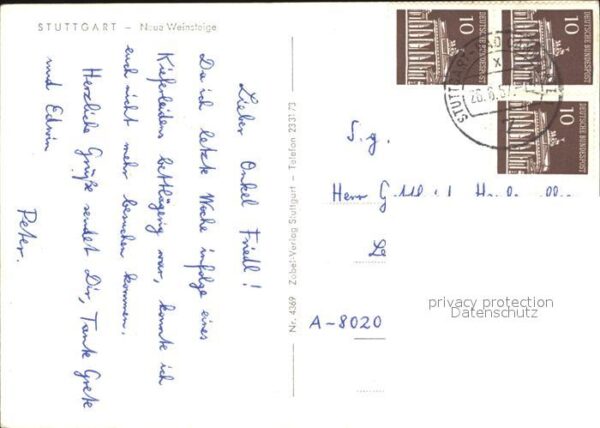 STUTTGART – Neue Weinsteige
Lieber Onkel Friedl!
Da ich letzte Woche infolge eines
Kieferleidens bettlägerig war, konnte ich
euch nicht mehr besuchen kommen.
Herzliche Grüße sendet Dir, Tante Grete
und Edwin
Peter.
Nr. 4369 Zobel-Verlag Stuttgart – Telefon 233173
10
DEUTSCHE BUNDESPOST
10
DEUTSCHE BUNDESPOST
10
DEUTSCHE BUNDESPOST
STUTTGART
S.g.
Herr
A-8020
privacy protection
Datenschutz